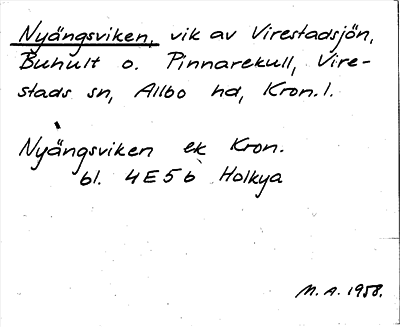 Nyängsviken, vik av Virestadsjön,
Buhult o. Pinnarekull, Vire-
stads sn, Allbo hd, Kron. l.
Nyängsviken ek Kron.
bl. 4E5b Holkya
M. A. 1958.